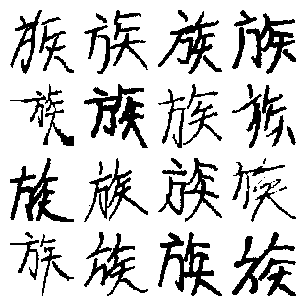 族族族族
族族族族
族族族族
族族族族